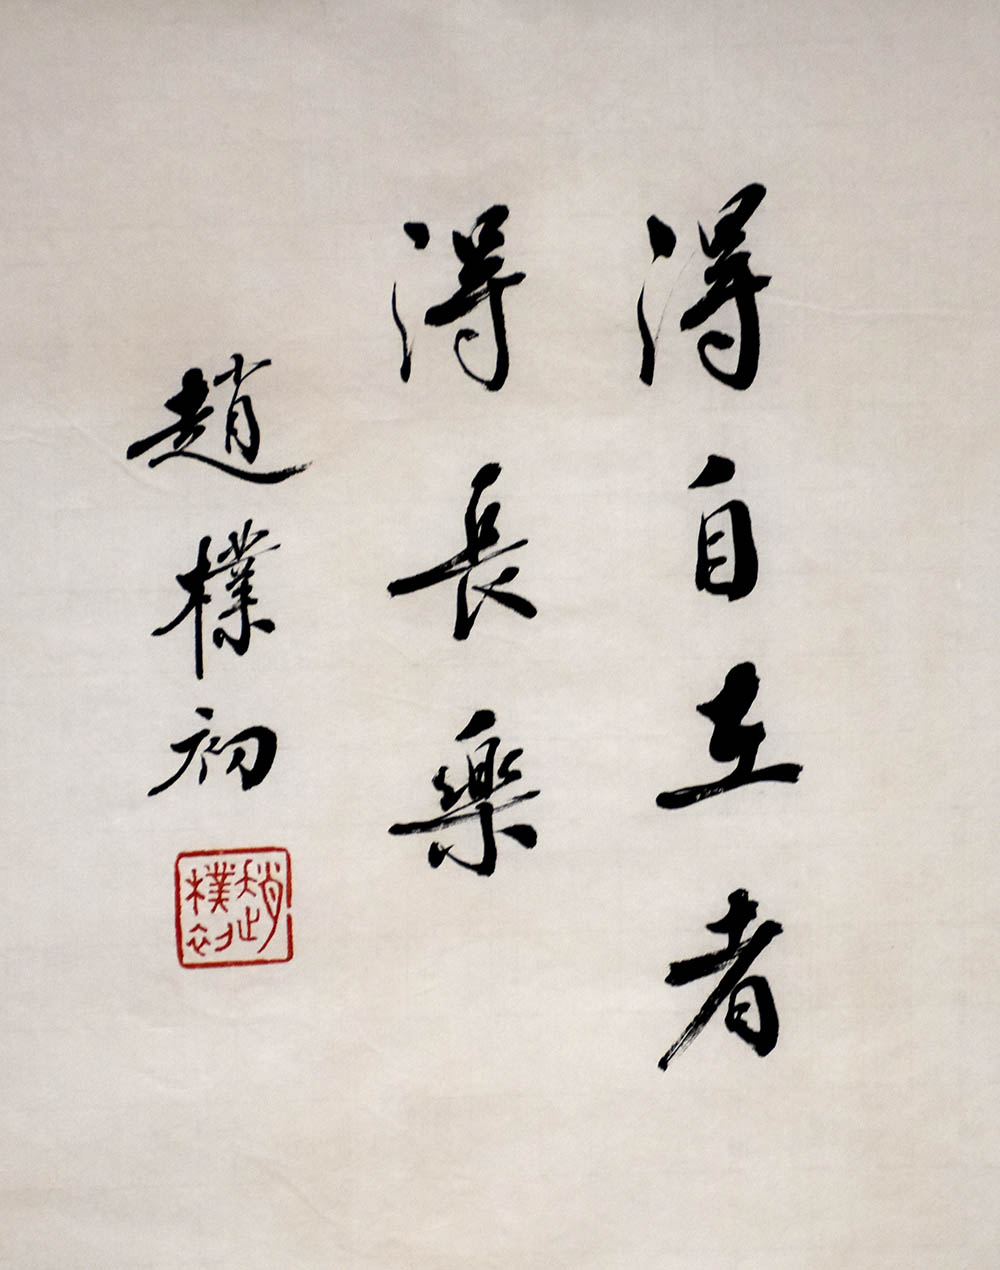 得自在者
得長樂
趙樸初
趙樸初